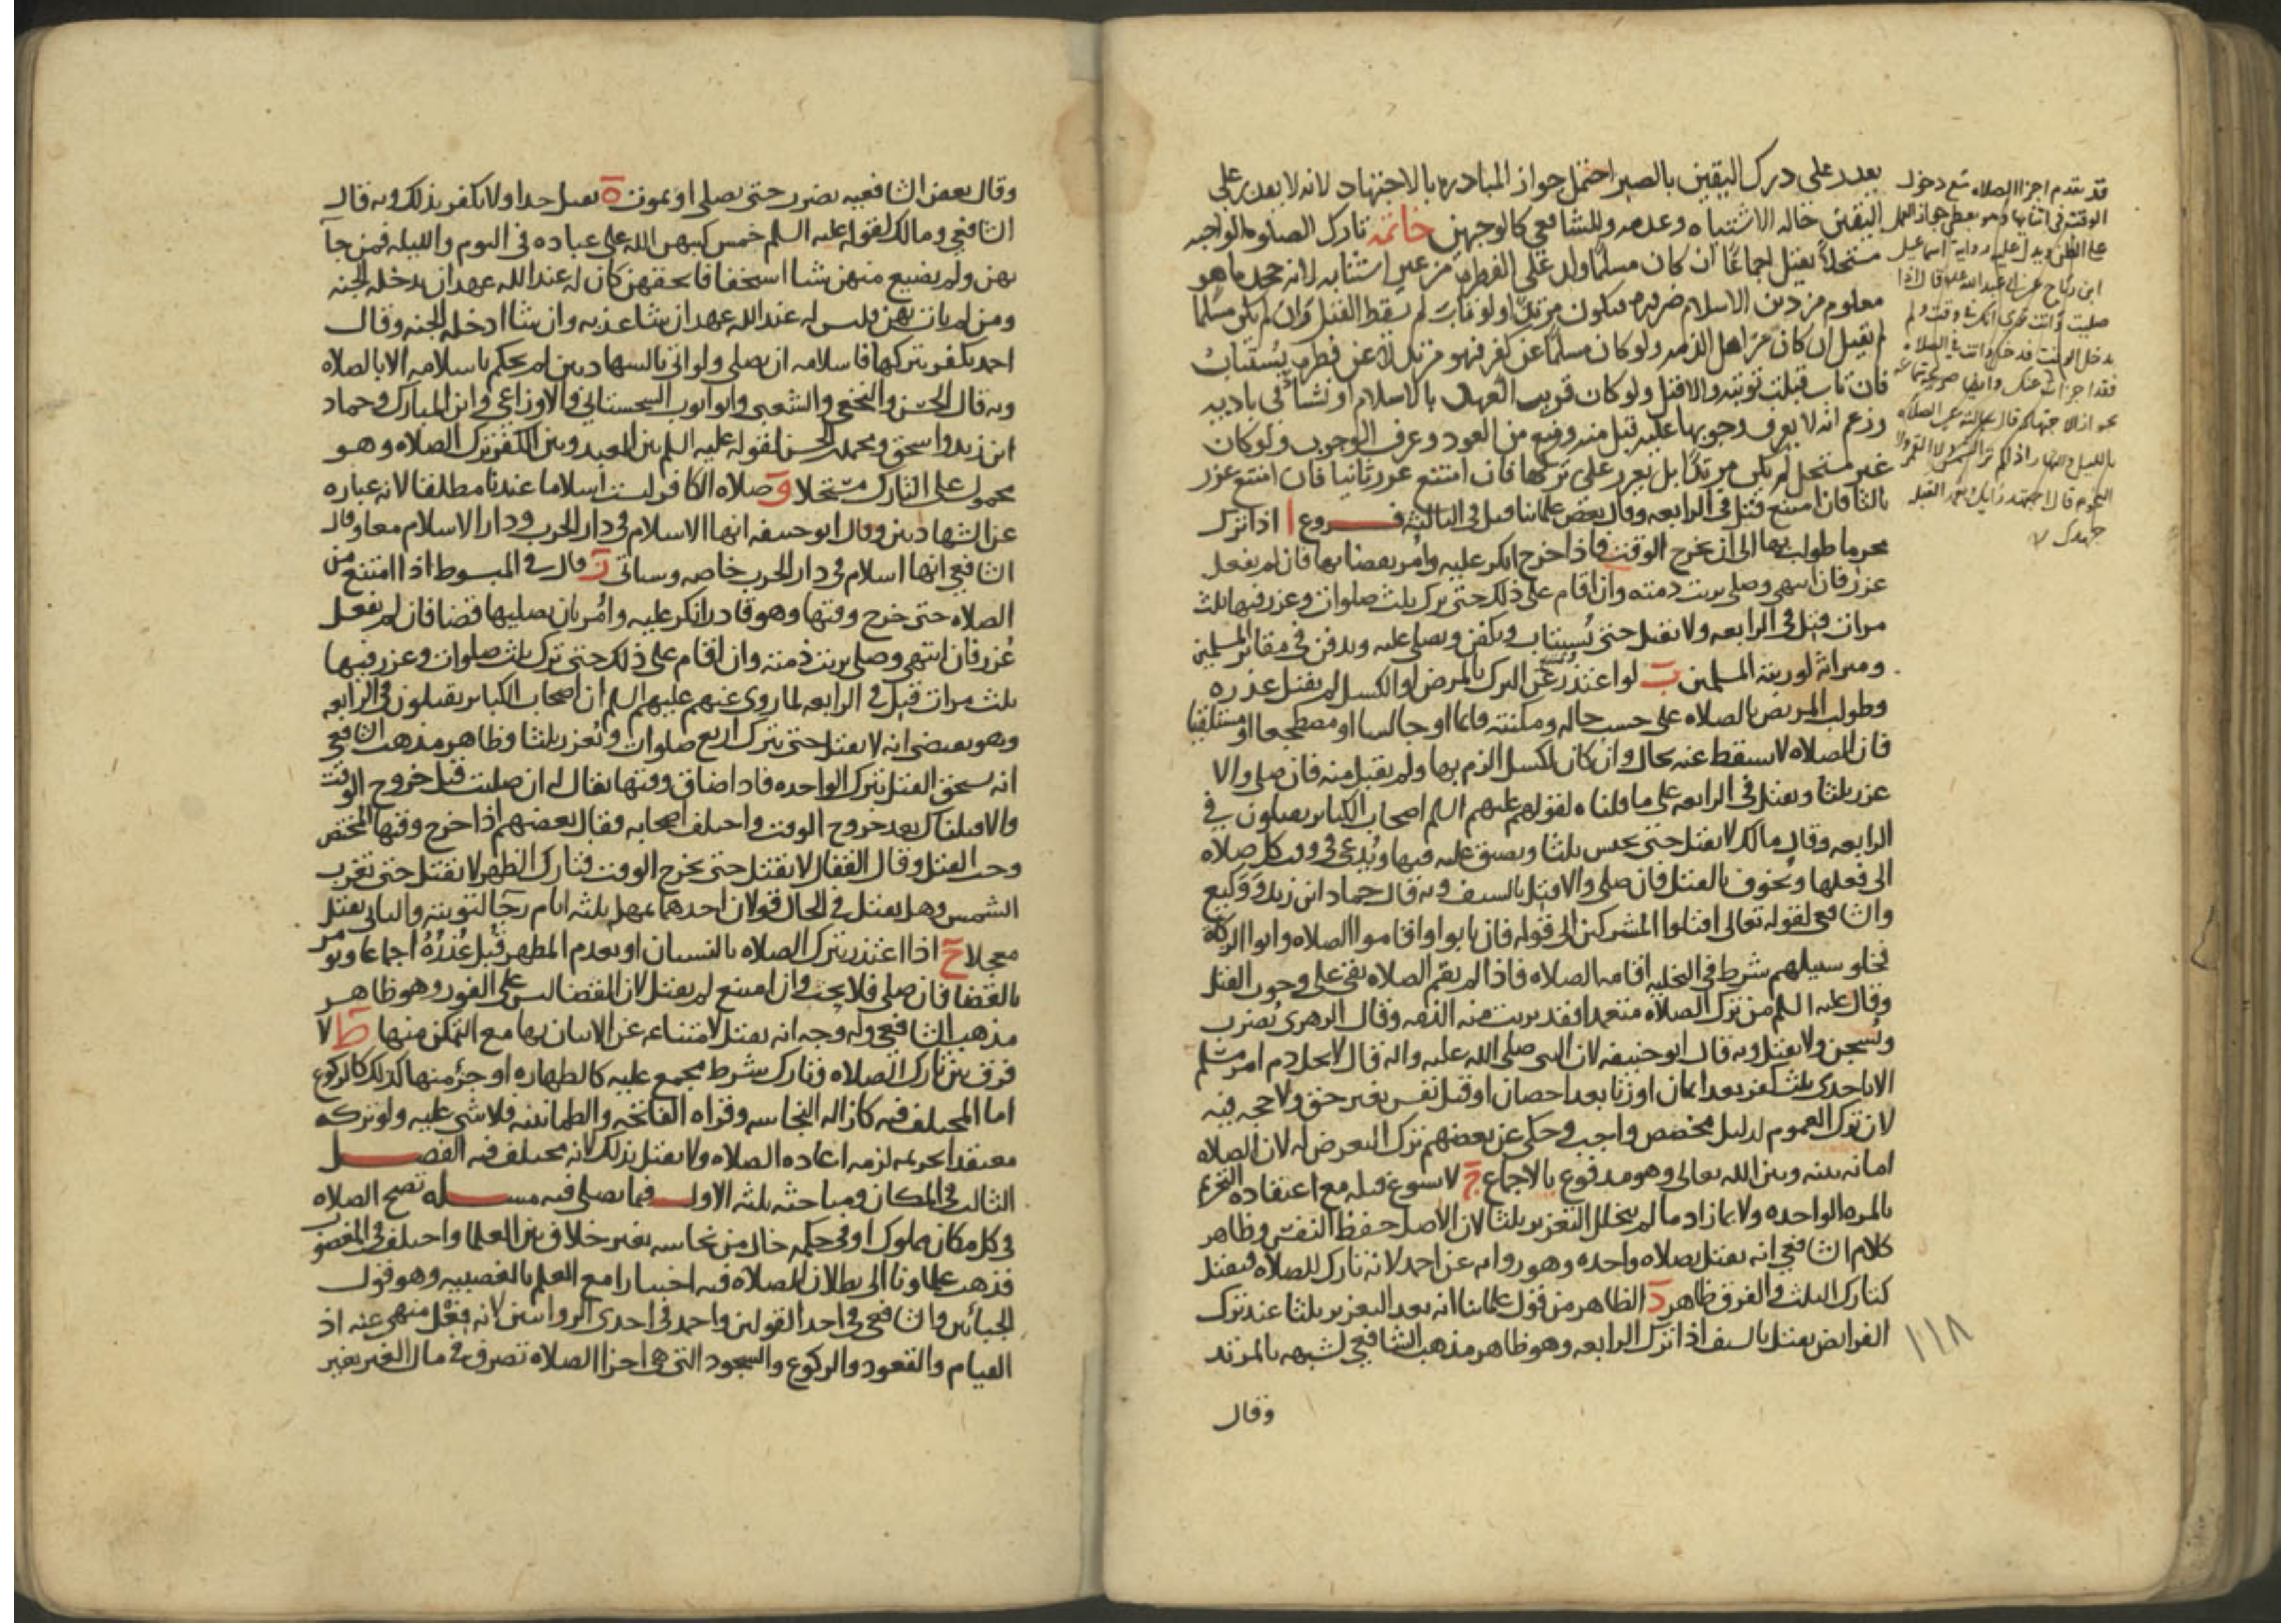 يقدر على درك اليقين بالصبر احتمل جواز المبادرة بالاجتهاد لانه لا يقدر على
اليقين حاله الاشتباه وعدمه وللشافعي كالوجهين خاتمه تارك الصلوه الواجبه
مستحلا يقتل اجماعا ان كان مسلما ولد على الفطره من غير استتابه لانه جحد ما هو
معلوم من دين الاسلام ضروره فيكون مرتدا ولو تاب لم يسقط القتل وان لم يكن مسلما
لم يقتل ان كان من اهل الذمه ولو كان مسلما عن كفر فهو مرتد لا عن فطره يستتاب
فان تاب قبلت توبته والا قتل ولو كان قريب العهد بالاسلام او نشأ في باديه
وزعم انه لا يعرف وجوبها عليه قبل منه ومنع من العود وعرف الوجوب ولو كان
غير مستحل لم يكن مرتدا بل يعزر على تركها فان امتنع عزر ثانيا فان امتنع عزر
ثالثا فان امتنع قتل في الرابعه وقال بعض علمائنا يقتل في الثالثه فروع ا اذا ترك
محرما طولب بها الى ان يخرج الوقت فاذا خرج انكر عليه وامر بقضائها فان لم يفعل
عزر فان انتهى وصلى برئت ذمته وان اقام على ذلك حتى ترك ثلث صلوات وعزر فيها ثلث
مرات قتل في الرابعه ولا يقتل حتى يستتاب ويكفن ويصلى عليه ويدفن في مقابر المسلمين
وميراثه لورثته المسلمين ب لو اعتذر عن الترك بالمرض او الكسل لم يقبل عذره
وطولب المريض بالصلاه على حسب حاله ومكنته قائما او جالسا او مضطجعا او مستلقيا
فان الصلاه لا تسقط عنه بحال وان كان لكسل الزم بها ولم يقبل منه فان صلى والا
عزر ثلثا ويقتل في الرابعه على ما قلناه لقولهم عليهم السلم اصحاب الكبائر يقتلون في
الرابعه وقال مالك لا يقتل حتى يحبس ثلثا ويضيق عليه فيها ويدعى في وقت كل صلاه
الى فعلها ويخوف بالقتل فان صلى والا قتل بالسيف وبه قال حماد ابن زيد ووكيع
والشافعي لقوله تعالى اقتلوا المشركين الى قوله فان تابوا واقاموا الصلاه واتوا الزكاه
فخلوا سبيلهم شرط في التخليه اقامه الصلاه فاذا لم يقم الصلاه بقي على وجوب القتل
وقال عليه السلم من ترك الصلاه متعمدا فقد برئت منه الذمه وقال الزهري يضرب
ويسجن ولا يقتل وبه قال ابو حنيفه لان النبي صلى الله عليه واله قال لا يحل دم امرء مسلم
الا باحدى ثلث كفر بعد ايمان او زنا بعد احصان او قتل نفس بغير حق ولا حجه فيه
لان ترك العموم لدليل مخصص واجب وحكي عن بعضهم ترك التعرض له لان الصلاه
امانه بينه وبين الله تعالى وهو مدفوع بالاجماع ج لا يسوغ قتله مع اعتقاده التحريم
بالمره الواحده ولا بما زاد ما لم يتخلل التعزير ثلثا لان الاصل حفظ النفس وظاهر
كلام الشافعي انه يقتل بصلاه واحده وهو روايه عن احمد لانه تارك للصلاه فيقتل
كتارك الثلث والفرق ظاهر د الظاهر من قول علمائنا انه بعد التعزير ثلثا عند ترك
الفرايض يقتل بالسيف اذا ترك الرابعه وهو ظاهر مذهب الشافعي لشبهه بالمرتد
وقال
قد تقدم اجزا الصلاه مع دخول
الوقت في اثنايها وهو يعطي جواز العمل
على الظن ويدل عليه رواية اسماعيل
ابن رباح عن ابي عبد الله قال اذا
صليت وانت ترى انك في وقت ولم
يدخل الوقت فدخل وانت في الصلاه
فقد اجزات عنك
بالليل والنهار اذا لم تر الشمس ولا القمر ولا
النجوم قال اجتهد رأيك وتعمد القبله
جهدك
١١٨
وقال بعض الشافعيه يضرب حتى يصلي او يموت ه يقتل حدا ولا يكفر بذلك وبه قال
الشافعي ومالك لقوله عليه السلم خمس كتبهن الله على عباده في اليوم والليله فمن جآ
بهن ولم يضيع منهن شيا استخفافا بحقهن كان له عند الله عهد ان يدخله الجنه
ومن لم يات بهن فليس له عند الله عهد ان شا عذبه وان شا ادخله الجنه وقال
احمد يكفر بتركها فاسلامه ان يصلي ولو اتى بالشهادتين لم يحكم باسلامه الا بالصلاه
وبه قال الحسن والنخعي والشعبي وابو ايوب السجستاني والاوزاعي وابن المبارك وحماد
ابن زيد واسحق ومحمد بن الحسن لقوله عليه السلم بين العبد وبين الكفر ترك الصلاه وهو
محمول على التارك مستحلا و صلاه الكافر ليست اسلاما عندنا مطلقا لانه عباره
عن الشهادتين وقال ابو حنيفه انها الاسلام في دار الحرب ودار الاسلام معا وقال
الشافعي انها اسلام في دار الحرب خاصه وسياتي ز قال في المبسوط اذا امتنع من
الصلاه حتى خرج وقتها وهو قادر انكر عليه وامر بان يصليها قضا فان لم يفعل
عزر فان انتهى وصلى برئت ذمته وان اقام على ذلك حتى ترك ثلث صلوات وعزر فيها
ثلث مرات قتل في الرابعه لما روي عنهم عليهم السلم ان اصحاب الكبائر يقتلون في الرابعه
وهو يقتضي انه لا يقتل حتى يترك اربع صلوات ويعزر ثلثا وظاهر مذهب الشافعي
انه يستحق القتل بترك الواحده فاذا ضاق وقتها يقال له ان صليت قبل خروج الوقت
والا قتلناك بعد خروج الوقت واختلف اصحابه فقال بعضهم اذا خرج وقتها المختص
وجب القتل وقال القفال لا يقتل حتى يخرج الوقت فتارك الظهر لا يقتل حتى تغرب
الشمس وهل يقتل في الحال قولان احدهما يمهل ثلثه ايام رجآ لتوبته والثاني يقتل
معجلا ح اذا اعتذر بترك الصلاه بالنسيان او بعدم المطهر قبل عذره اجماعا ويؤمر
بالقضا فان صلى فلا بحث وان امتنع لم يقتل لان القضا ليس على الفور وهو ظاهر
مذهب الشافعي وله وجه انه يقتل لامتناعه عن الاتيان بها مع التمكن منها ط لا
فرق بين تارك الصلاه وتارك شرط مجمع عليه كالطهاره او جزء منها كذلك كالركوع
اما المختلف فيه كازاله النجاسه وقراه الفاتحه والطمانينه فلا شي عليه ولو تركه
معتقدا تحريمه لزمه اعاده الصلاه ولا يقتل بذلك لانه مختلف فيه الفصل
الثالث في المكان ومباحثه ثلثه الاول فيما يصلى فيه مسله تصح الصلاه
في كل مكان مملوك او في حكمه خال من نجاسه بغير خلاف بين العلما واختلف في المغصوب
فذهب علماونا الى بطلان الصلاه فيه اختيارا مع العلم بالغصبيه وهو قول
الجبائين والشافعي في احد القولين واحمد في احدى الروايتين لانه فعل منهي عنه اذ
القيام والقعود والركوع والسجود التي هي اجزا الصلاه تصرف في مال الغير بغير